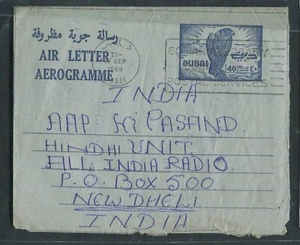 رسالة جوية مظروفة
AIR LETTER
AEROGRAMME
SEP
1969
DUBAI
40
٤٠
INDIA
AAP Ki PASAND
HINDAI UNIT
ALL INDIA RADIO
P.O. BOX 500
NEW DHELI
INDIA